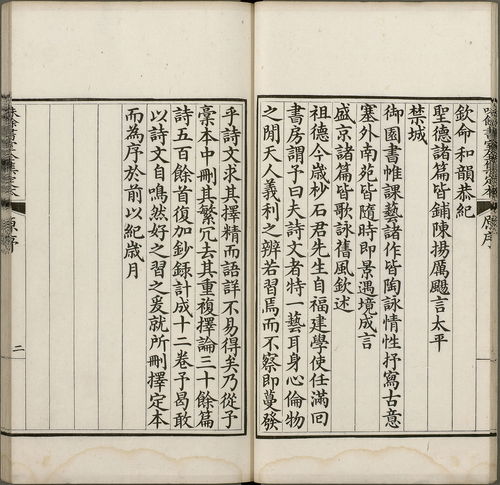 欽命和韻恭紀
聖德諸篇皆鋪陳揚厲颺言太平
禁城
御園書帷課藝諸作皆陶詠情性抒寫古意
塞外南苑皆隨時即景遇境成言
盛京諸篇皆歌詠舊風欽述
祖德今歲杪石君先生自福建學使任滿回
書房謂予曰夫詩文者特一藝耳身心倫物
之閒天人義利之辨若習焉而不察即蔓發
乎詩文求其擇精而語詳不易得矣乃從予
稾本中刪其繁冗去其重複擇論三十餘篇
詩五百餘首復加鈔錄計成十二卷予曷敢
以詩文自鳴然好之習之爰就所刪擇定本
而為序於前以紀歲月
原序
二